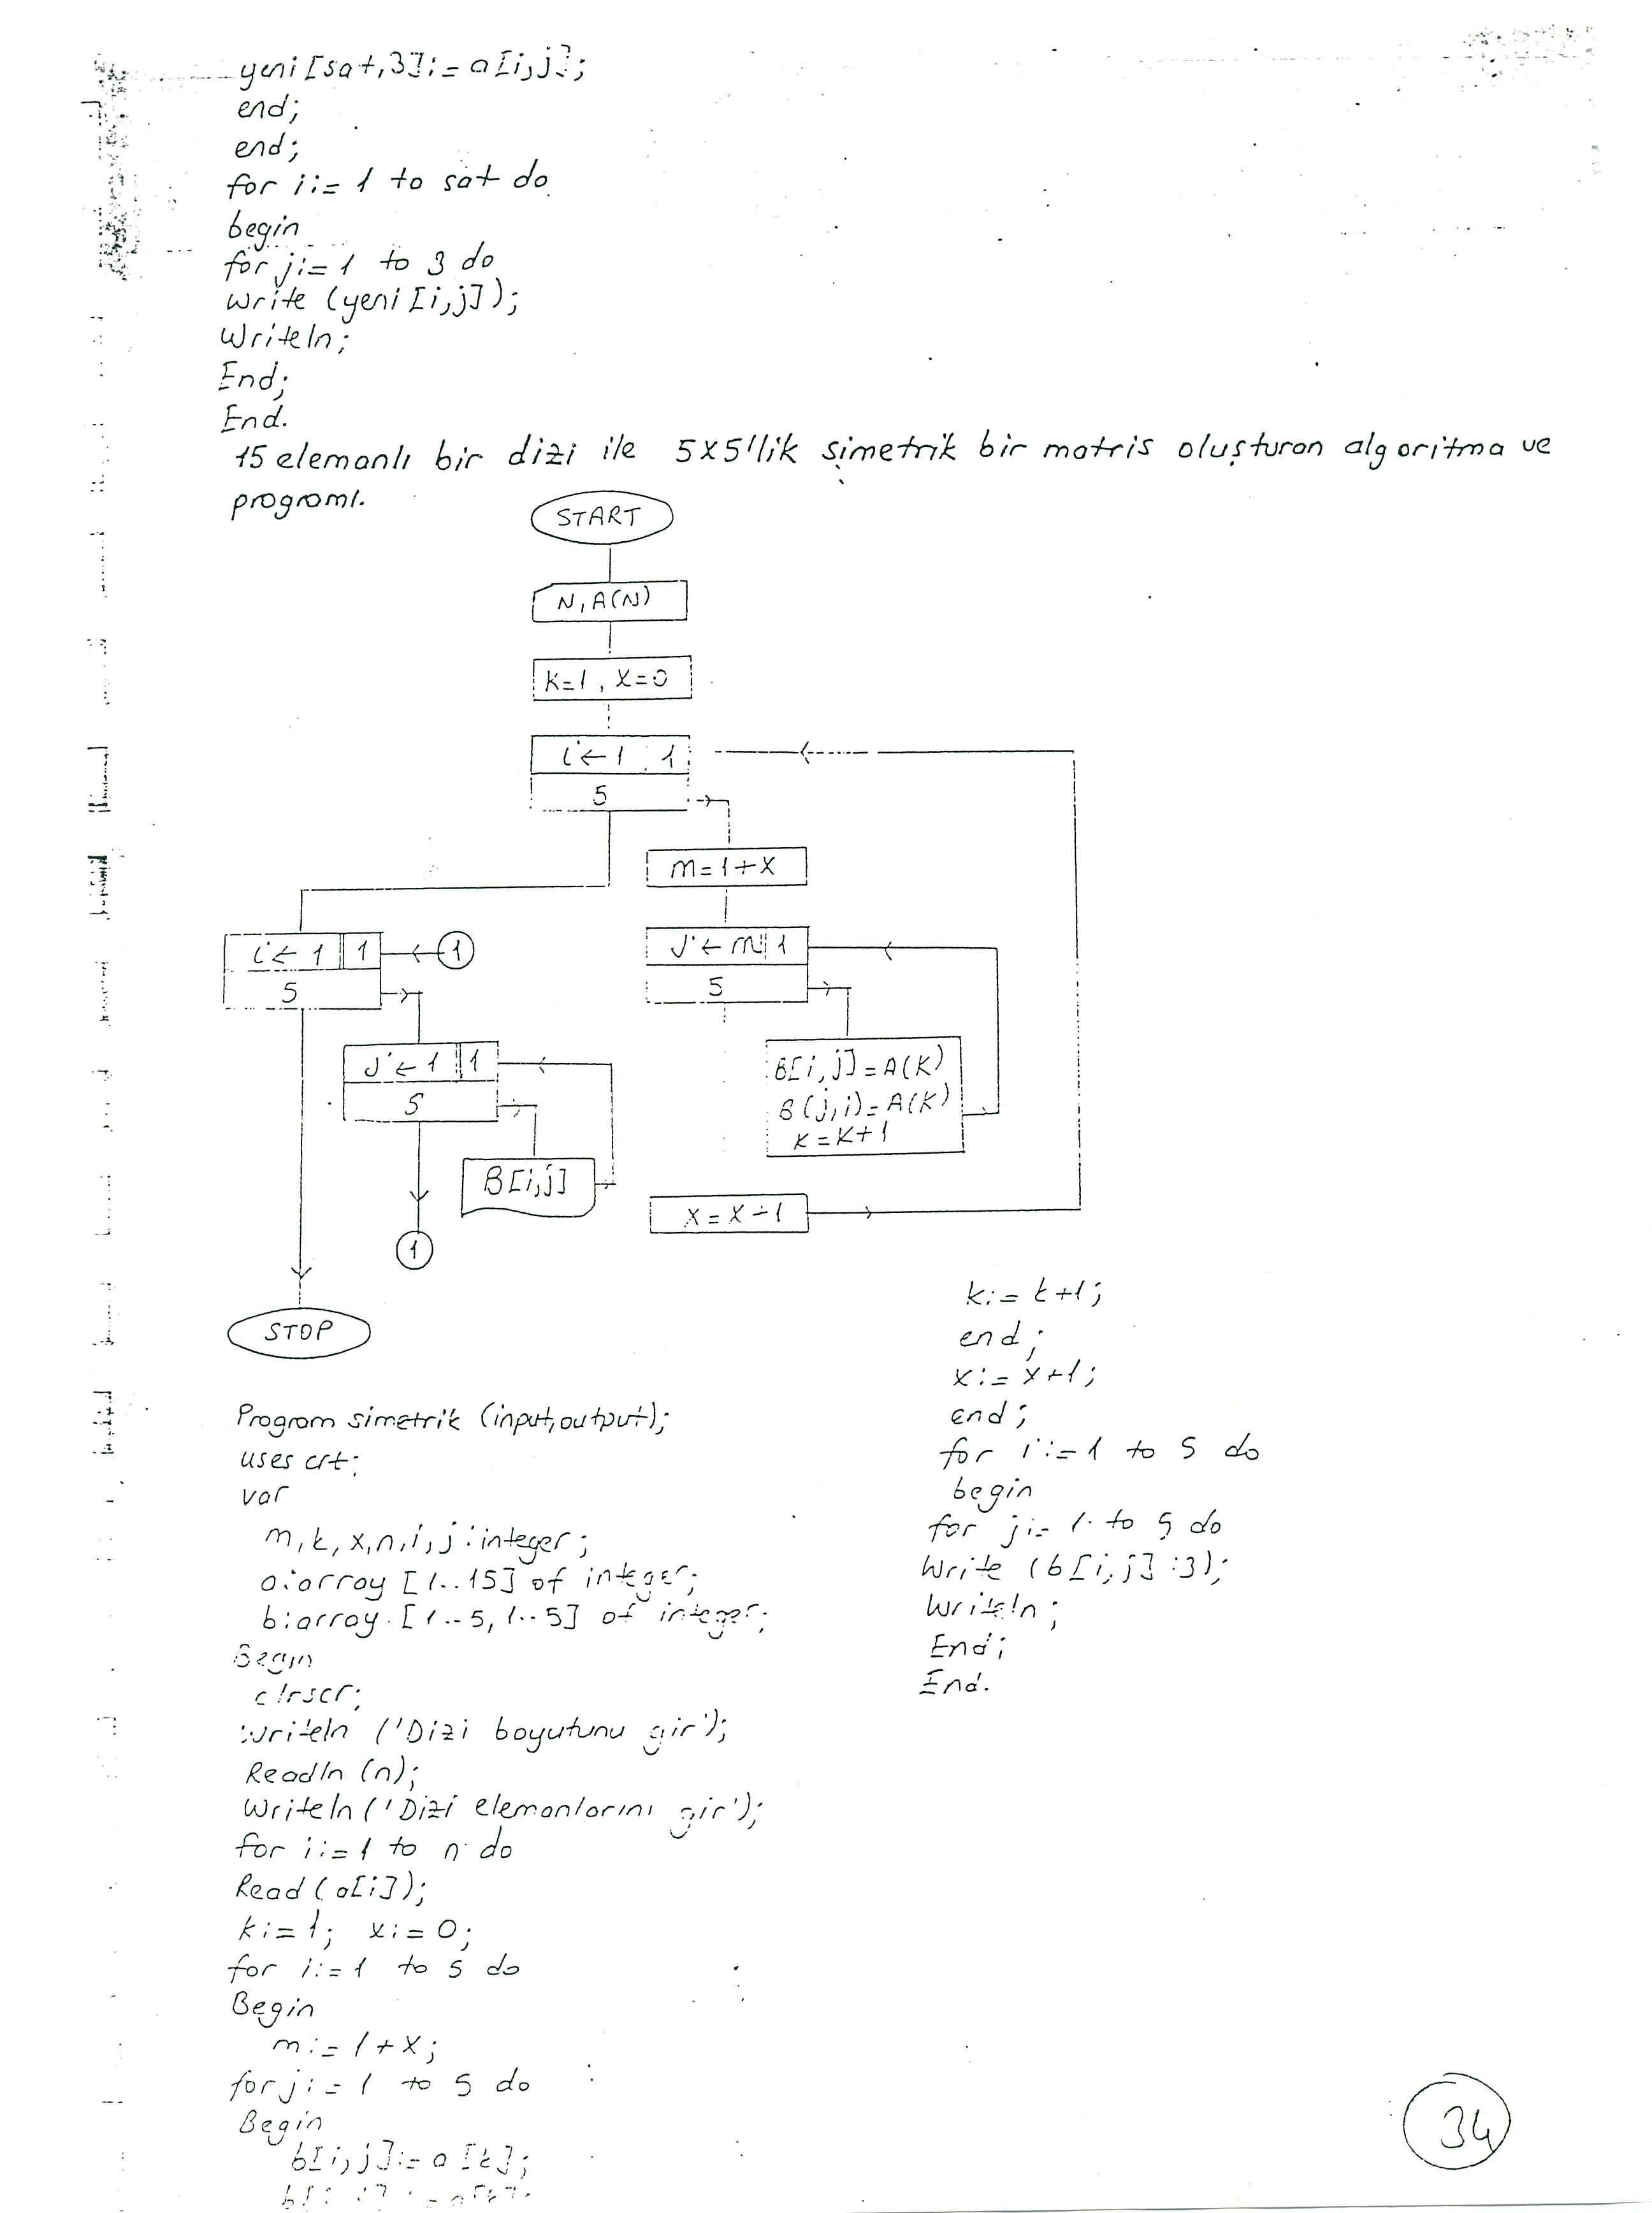 yeni[sat,3]:= a[i,j];
end;
end;
for i:= 1 to sat do
begin
for j:= 1 to 3 do
write (yeni[i,j]);
Writeln;
End;
End.
15 elemanlı bir dizi ile 5x5'lik simetrik bir matris oluşturan algoritma ve
programı.
START
N, A(N)
K=1, X=0
i←1 1
5
m=1+X
i←1 1
1
J←m 1
5
5
J←1 1
B[i,j]=A(K)
5
B(j,i)=A(K)
K=K+1
B[i,j]
X=X+1
1
STOP
Program simetrik (input,output);
uses crt;
var
m,k,x,n,i,j:integer;
a:array [1..15] of integer;
b:array [1..5,1..5] of integer;
Begin
clrscr;
Writeln ('Dizi boyutunu gir');
Readln (n);
Writeln ('Dizi elemanlarını gir');
for i:=1 to n do
Read (a[i]);
k:=1; x:=0;
for i:=1 to 5 do
Begin
m:=1+X;
for j:=1 to 5 do
Begin
b[i,j]:=a[k];
k:=k+1;
end;
x:=x+1;
end;
for i:=1 to 5 do
begin
for j:=1 to 5 do
Write (b[i,j]:3);
Writeln;
End;
End.
34